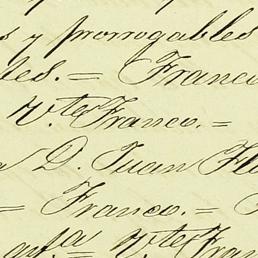 s y prorrogables
tes. = Franco
V.te Franco. =
D. Juan Flo
= Franco. =
V.te Fran